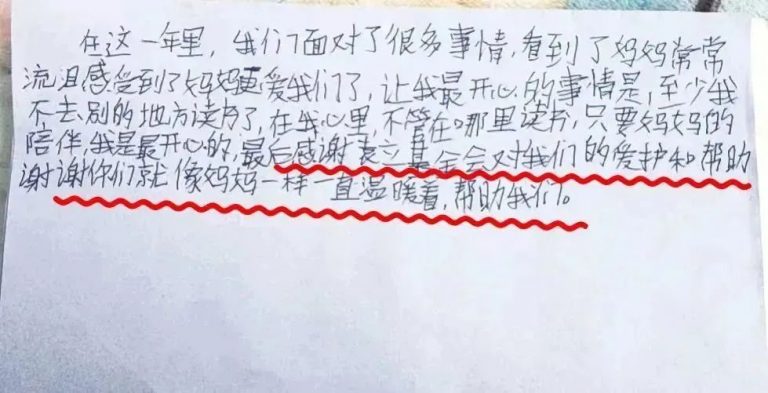 在这一年里，我们面对了很多事情，看到了妈妈常常
流泪感受到了妈妈更爱我们了，让我最开心的事情是，至少我
不去别的地方读书了，在我心里，不管在哪里读书，只要妈妈的
陪伴，我是最开心的，最后感谢麦立基金会对我们的爱护和帮助
谢谢你们就像妈妈一样一直温暖着，帮助我们。